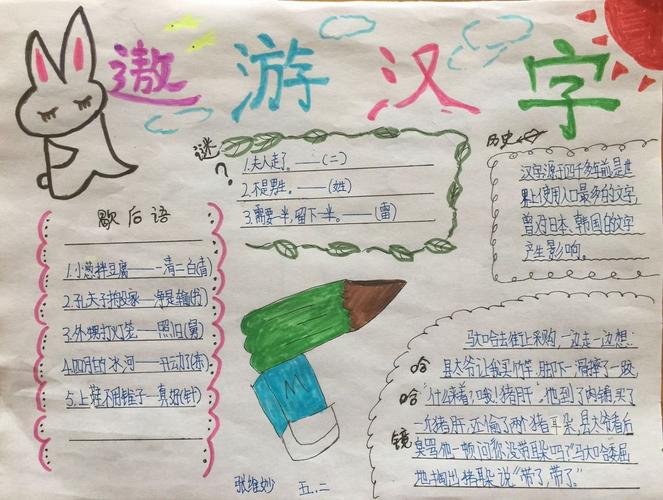 遨游汉字
谜?
1.夫人走了。——(二)
2.不是男生。——(姓)
3.需要一半,留下一半。——(雷)
历史
汉字源于四千多年前,是世
界上使用人口最多的文字,
曾对日本、韩国的文字
产生影响。
歇后语
1.小葱拌豆腐——一清二白(青)
2.孔夫子搬家——净是输(书)
3.外甥打灯笼——照旧(舅)
4.四月的冰河——开动了(冻)
5.上鞋不用锥子—真好(针)
哈哈镜
马大哈去集让采购,一边走一边想:
县太爷让我买竹竿,脚下一滑摔了一跤,
"什么来着?哦!猪肝",他到了肉铺买了
一个猪肝,还偷了两个猪耳朵,县太爷看后
臭骂他一顿问:你没带耳朵吗?马大哈委屈
地掏出猪耳朵说"带了,带了"。
张维妙 五.二